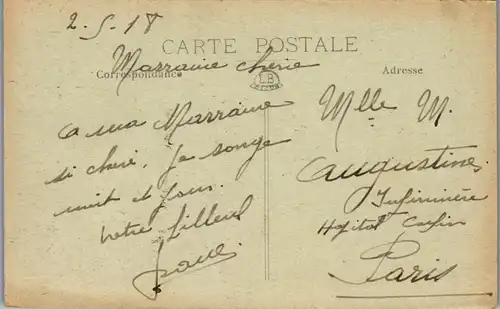 2.5.18
CARTE POSTALE
Correspondance
Adresse
Marraine cherie
LB
a ma Marraine
si cheri. Je songe
nuit et jour.
votre filleul
Mlle M.
Augustine
Infirmière
Hôpital
Paris